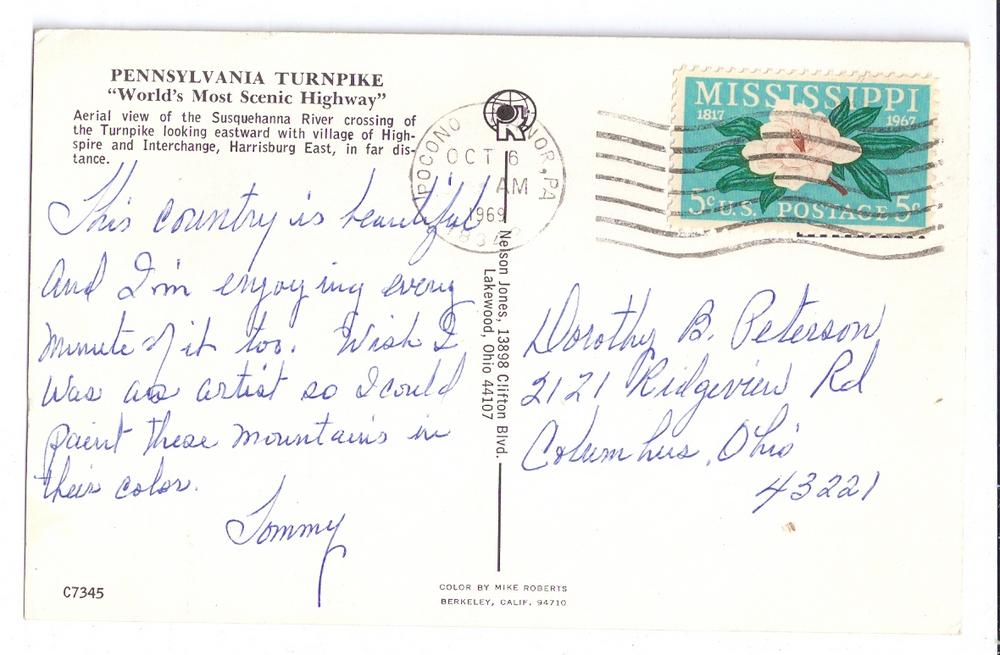 PENNSYLVANIA TURNPIKE
"World's Most Scenic Highway"
Aerial view of the Susquehanna River crossing of
the Turnpike looking eastward with village of High-
spire and Interchange, Harrisburg East, in far dis-
tance.
This country is beautiful
and I'm enjoying every
minute of it too. Wish I
was an artist so I could
paint these mountains in
their color.
Tommy
C7345
POCONO NOR, PA
OCT 6
AM
1969
Nelson Jones, 13898 Clifton Blvd.
Lakewood, Ohio 44107
COLOR BY MIKE ROBERTS
BERKELEY, CALIF. 94710
MISSISSIPPI
1817 1967
5c U.S. POSTAGE 5c
Dorothy B. Peterson
2121 Ridgeview Rd
Columbus, Ohio
43221